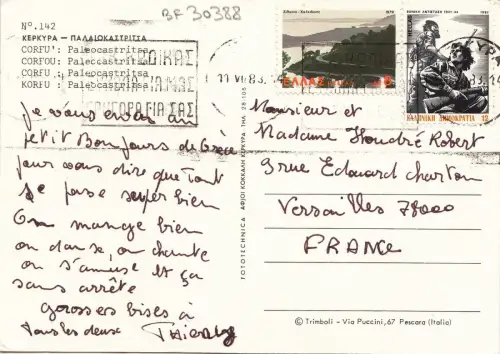 BF 30388
N°.142
ΚΕΡΚΥΡΑ - ΠΑΛΑΙΟΚΑΣΤΡΙΤΣΑ
CORFU': Paleocastritsa
CORFOU: Paleocastritsa
CORFU : Paleocastritsa
KORFU : Paleocastritsa
ΣΑΣ
je vous envoi un
petit Bonjours de Grèce
pour vous dire que tout
se passe super bien
On mange bien
on danse, on chante
on s'amuse et ça
sans arrête
grosses bises à
tous les deux Thierry
FOTOTECHNICA ΑΦΟΙ ΚΟΚΚΑΛΗ ΚΕΡΚΥΡΑ ΤΗΛ 28-105
1979
ΕΛΛΑΣ 8
ΕΘΝΙΚΗ ΑΝΤΙΣΤΑΣΗ 1941-44
1982
ΕΛΛΗΝΙΚΗ ΔΗΜΟΚΡΑΤΙΑ 12
Monsieur et
Madame Robert
3 rue Edouard charton
Versailles 78000
FRANCE
© Trimboli - Via Puccini, 67 Pescara (Italia)